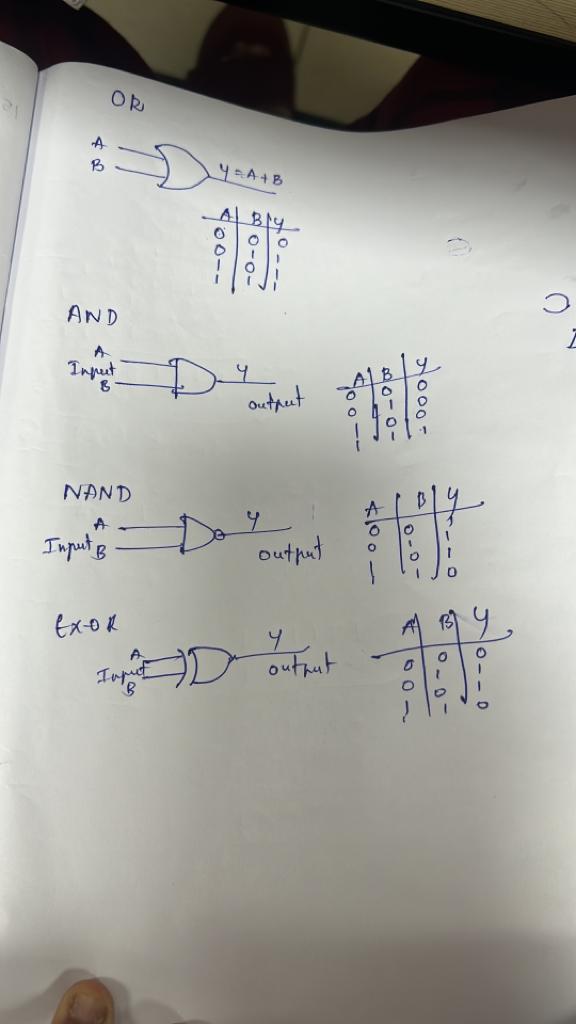 OR
A
B
Y = A + B
A B Y
0 0 0
0 1 1
1 0 1
1 1 1
AND
A
Input
B
Y
output
A B Y
0 0 0
0 1 0
1 0 0
1 1 1
NAND
A
Input B
Y
output
A B Y
0 0 1
0 1 1
1 0 1
1 1 0
Ex-OR
A
Input
B
Y
output
A B Y
0 0 0
0 1 1
1 0 1
1 1 0